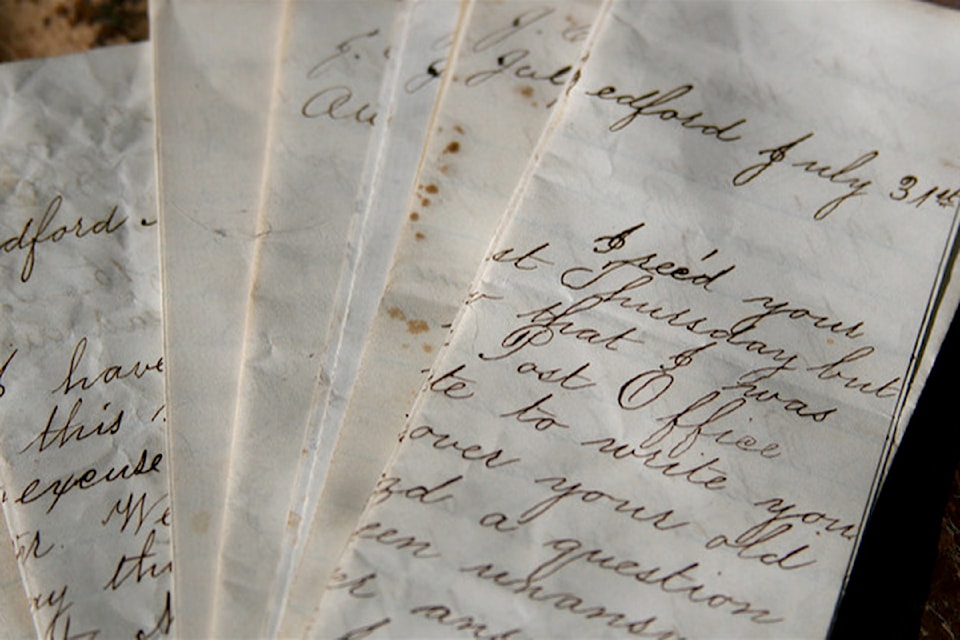 dford
I have
this
excuse
r. We
ay thi
J.
Au
J.
Jul
edford July 31st
I rec'd your
st Thursday but
that I was
Post Office
te to write you
over your old
nd a question
een unans
er ans